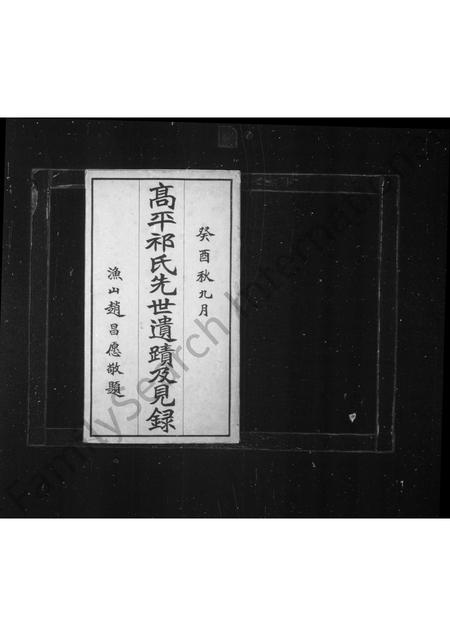 癸酉秋九月
高平祁氏先世遺蹟及見録
漁山趙昌愿敬題
FamilySearch International